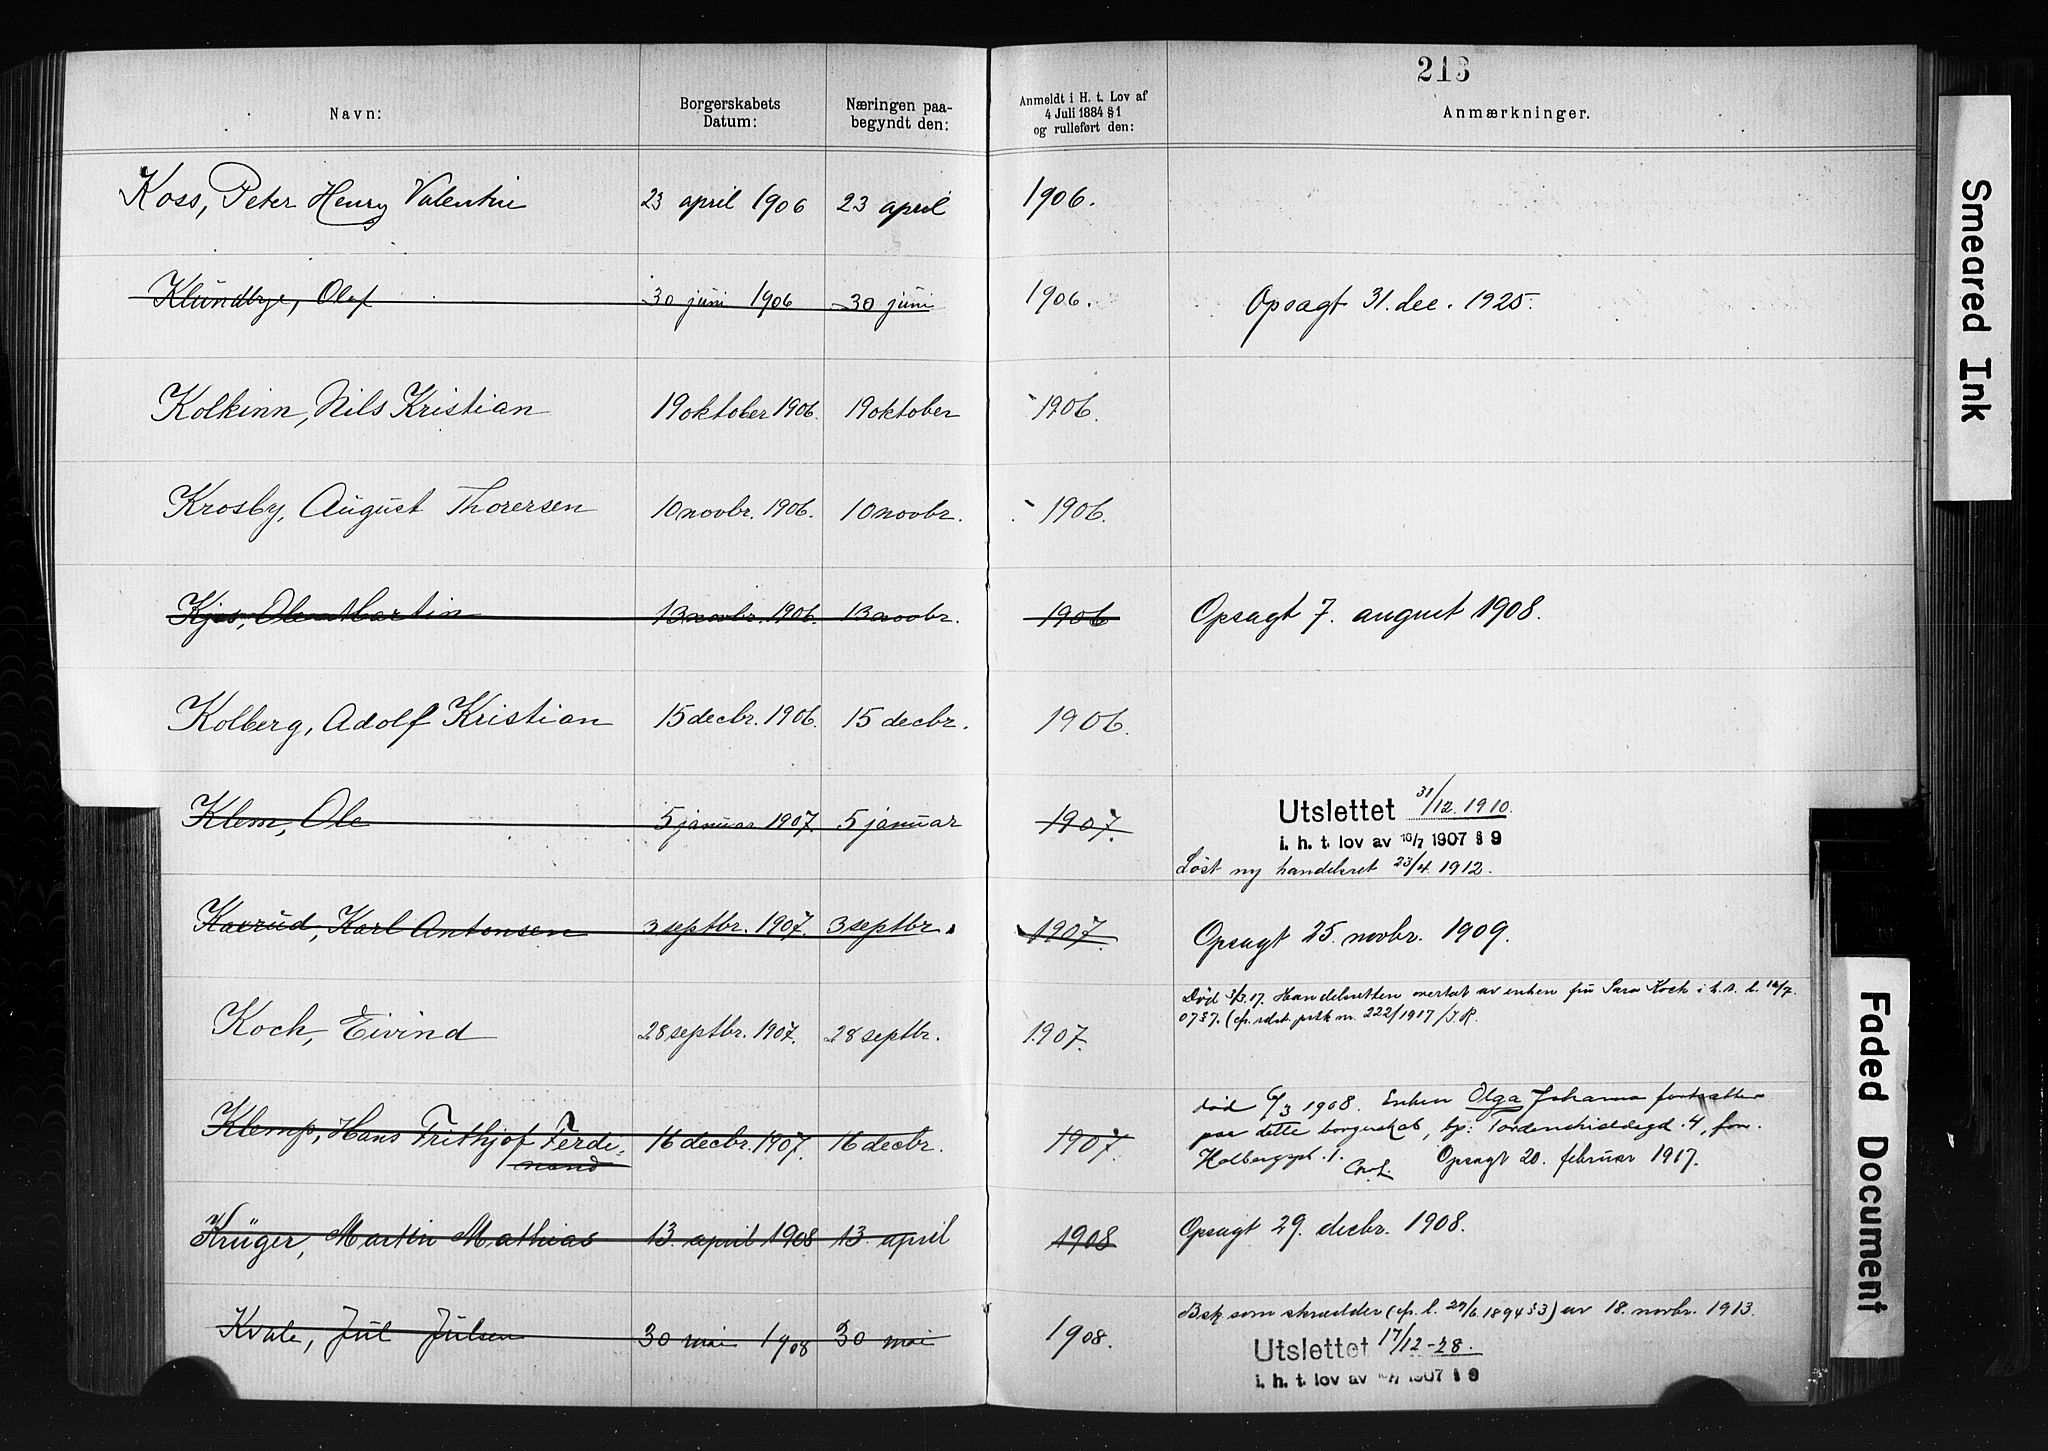 213
Navn: Borgerskabets Datum: Næringen paabegyndt den: Anmeldt i H. t. Lov af 4 Juli 1884 § 1 og rulleført den: Anmærkninger.
Koss, Peter Henry Valentin 23 april 1906 23 april 1906.
Klundbye, Olaf 30 juni 1906 30 juni 1906. Opsagt 31. dec. 1925.
Kolkinn, Nils Kristian 19 oktober 1906. 19 oktober 1906.
Krosby, August Thorersen 10 novbr. 1906. 10 novbr. 1906.
Kjøs, Ole Martin 13 novbr. 1906. 13 novbr. 1906 Opsagt 7. august 1908.
Kolberg, Adolf Kristian 15 decbr. 1906. 15 decbr. 1906.
Klem, Ole 5 januar 1907. 5 januar 1907. Utslettet 31/12. 1910.
i. h. t. lov av 16/7 1907 § 9
Løst ny handelsret 23/4 1912.
Kaerud, Karl Antonsen 3 septbr. 1907. 3 septbr. 1907. Opsagt 25. novbr. 1909.
Død 3/3.17. Handelsretten overtat av enken fru Sara Koch i h.t. l. 16/7.
07 § 7. (cfr. rdst. prtk nr. 222/1917/J.R.
Koch, Eivind 28 septbr. 1907. 28 septbr. 1907.
død 6/3 1908. Enken Olga Johanna fortsætter
Klemp, Hans Frithjof Ferdinand 16 decbr. 1907. 16 decbr. 1907. paa dette borgerskab, bp: Tordenskioldsgd. 4, før.
Holbergspl. 1. Opsagt 20. februar 1917.
Krüger, Martin Mathias 13. april 1908 13. april 1908 Opsagt 29. decbr. 1908.
Kvale, Jul Julsen 30 mai 1908 30 mai 1908. Bsk som skrædder (cfr. l. 27/6 1894 § 3) av 18. novbr. 1913.
Utslettet 17/12-28.
i. h. t. lov av 16/7 1907 § 9
Smeared Ink
Faded Document